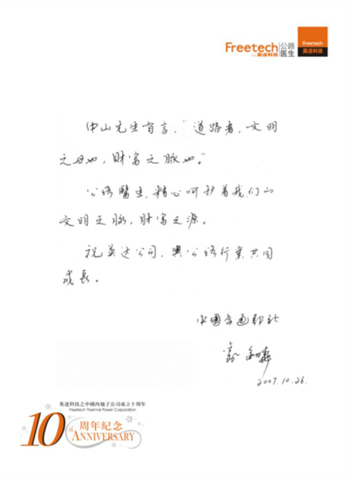 Freetech 公路医生
英达科技
Freetech
英达科技
中山先生有言,“道路者,文明
之母也,财富之脉也。”
公路醫生,精心呵护着我们的
文明之脉,财富之源。
祝英达公司,與公路行業共同
成長。
中國交通部社
2007.10.26.
英達科技之中國內地子公司成立十周年
Freetech Thermal Power Corporation
10th 周年纪念
ANNIVERSARY